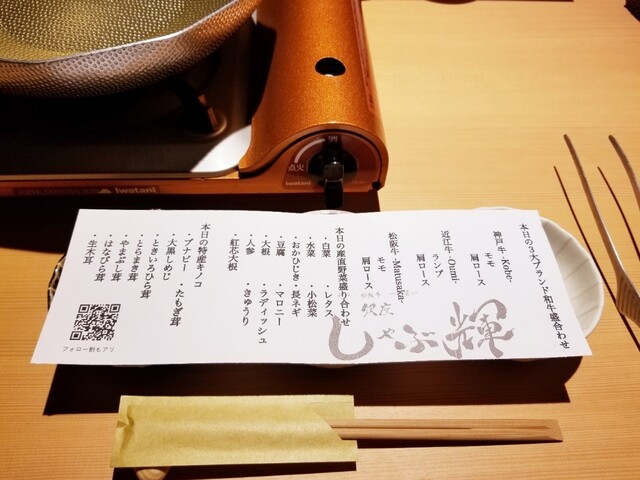 本日の3大ブランド和牛盛合わせ
神戸牛 -Kobe-
モモ
肩ロース
近江牛 -Oumi-
ランプ
肩ロース
松阪牛 -Matusaka-
モモ
肩ロース
しゃぶ輝
銀座
本日の産直野菜盛り合わせ
・白菜 ・レタス
・水菜 ・小松菜
・おかひじき ・長ネギ
・豆腐 ・マロニー
・大根 ・ラディッシュ
・人参 ・きゅうり
・紅芯大根
本日の特産キノコ
・ブナピー ・たもぎ茸
・大黒しめじ
・ときいろひら茸
・とらまき茸
・やまぶし茸
・はなびら茸
・生木耳
フォロー割もアリ
点火
Iwatani
Iwatani